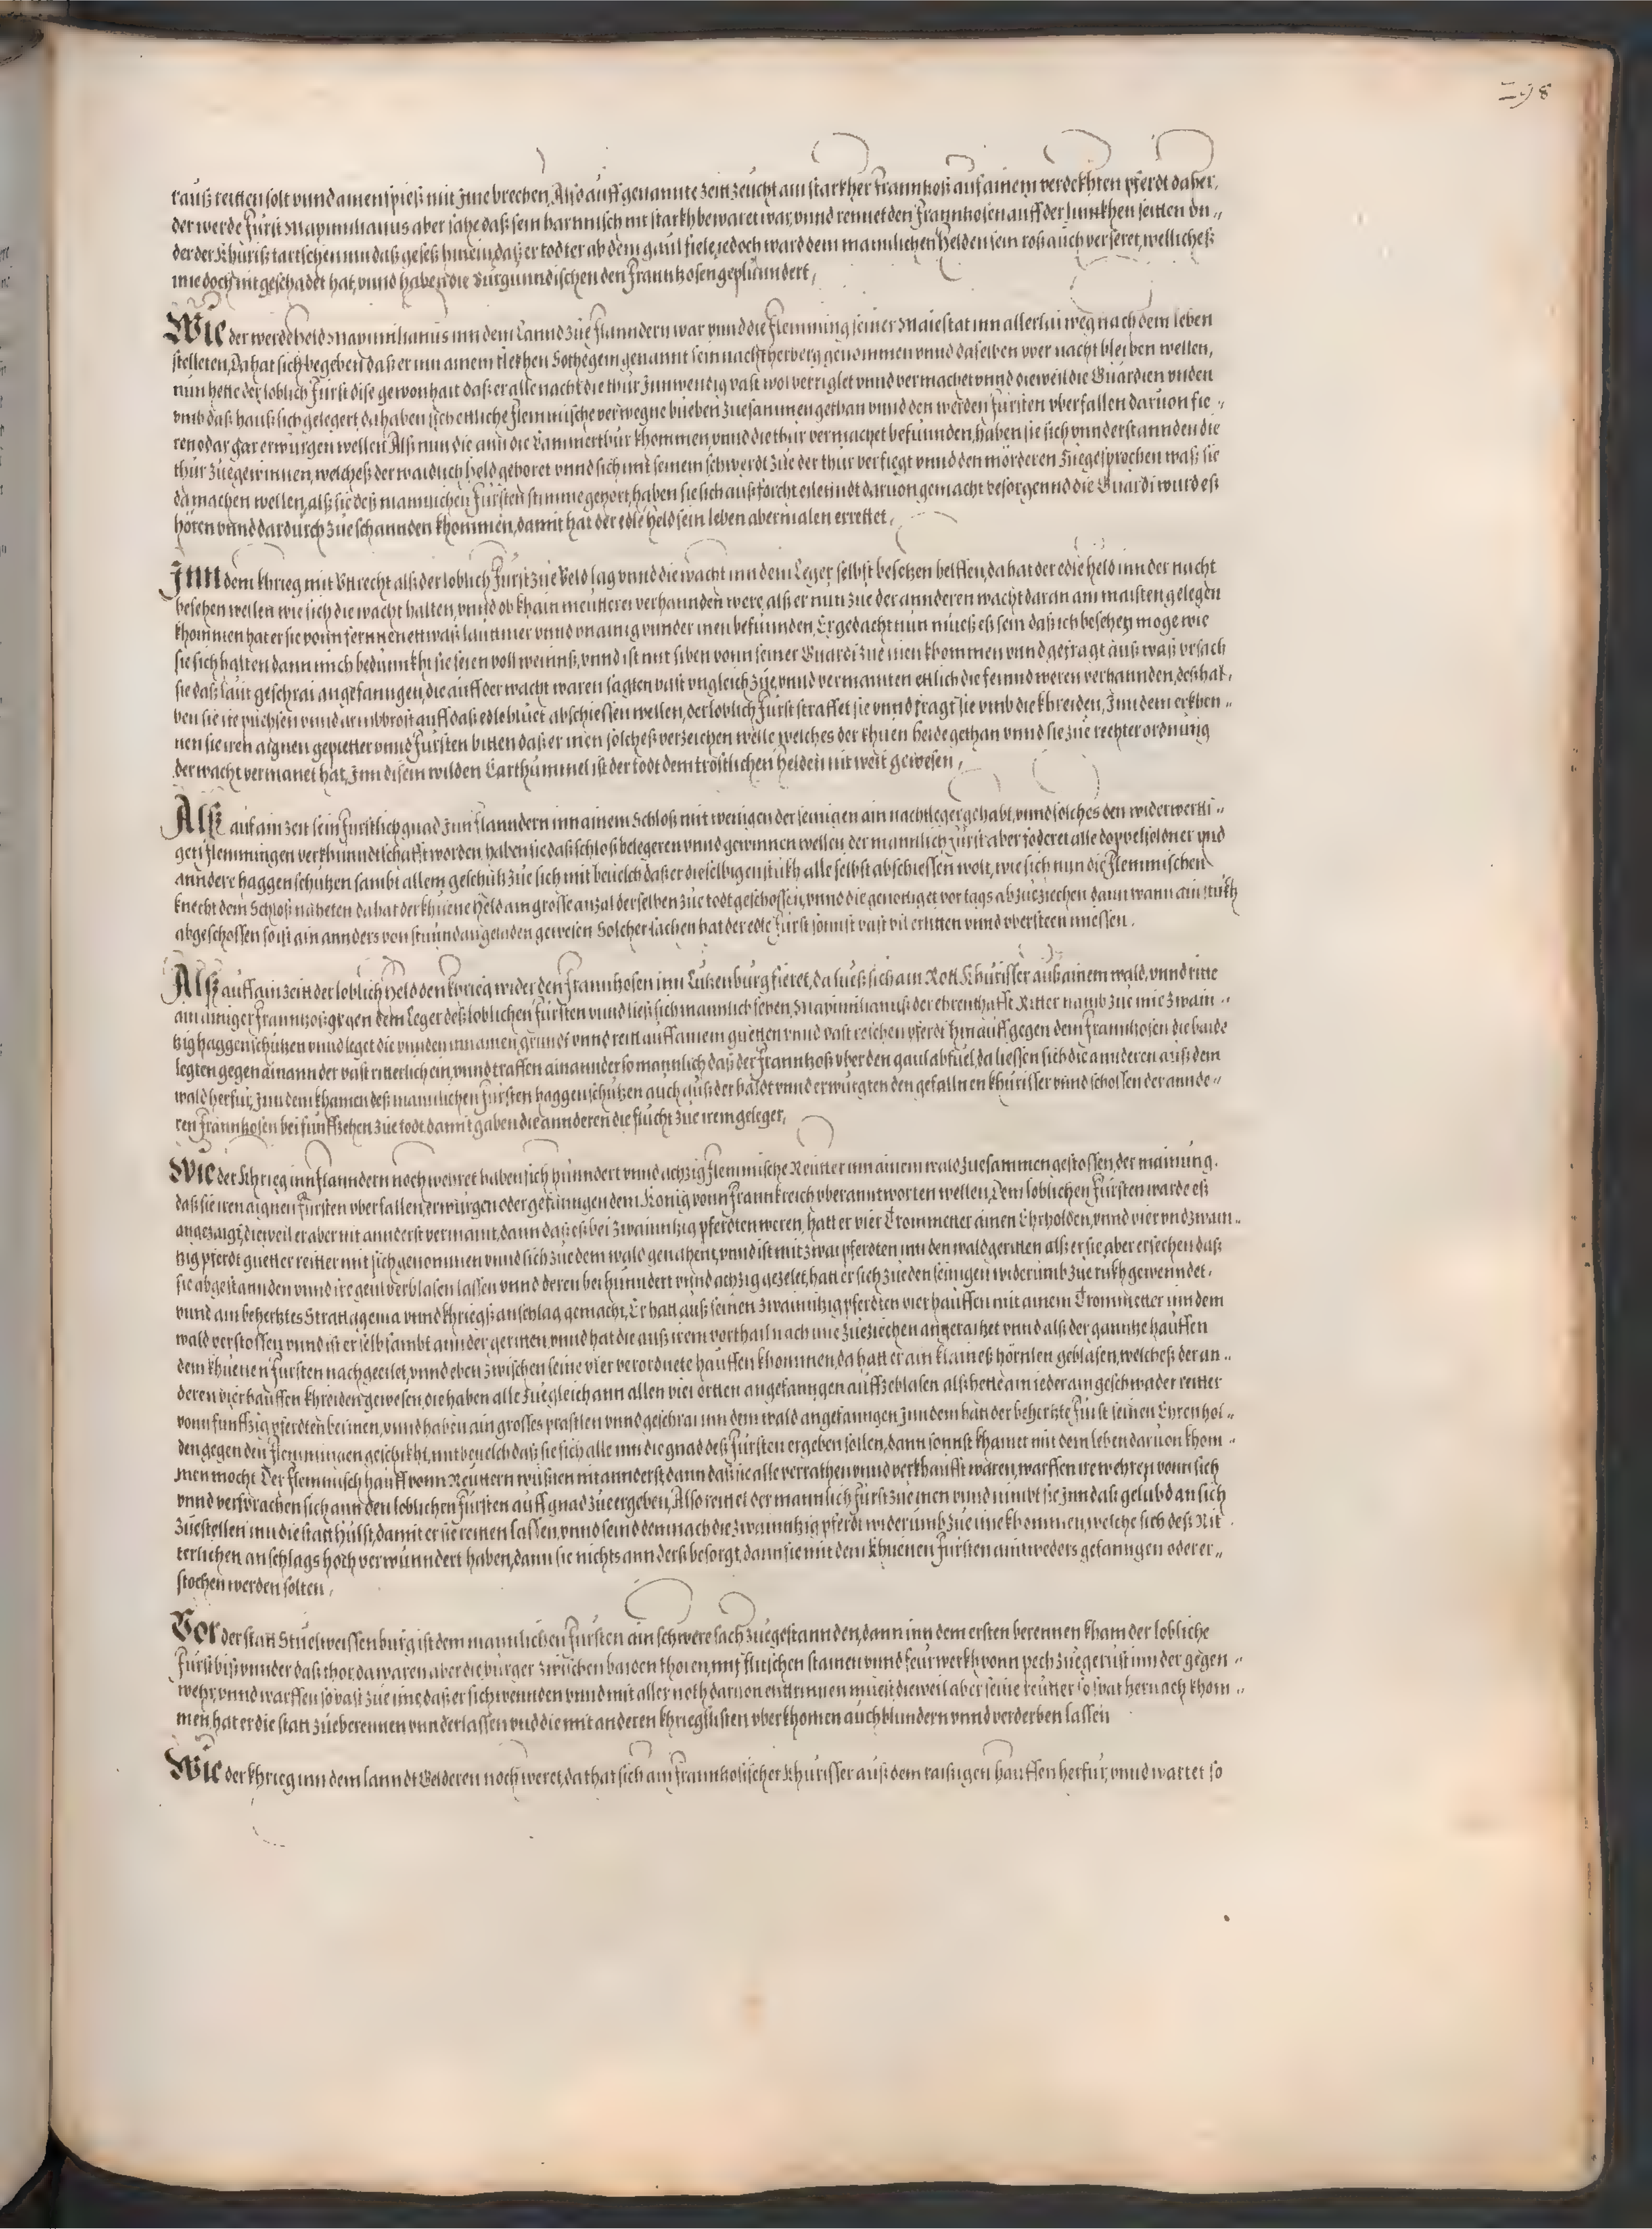 298
rauß reitten solt vnnd ainen spieß mit jme brechen, Also auff genannte zeitt zeucht ain starkher Frannkoß auf ainem verdekhten pferdt daher,
der werde Fürst Maximilianus aber sahe daß sein harnnisch nit starkh bewaret war, vnnd rennet den Frannkosen auff der linnkhen seitten vn„
der der Khüriß tartschen inn daß geseß hinein, daß er todter ab dem gaul fiele, jedoch ward dem mannlichen Helden sein roß auch verseret, welliches
ime doch nit geschadet hat, vnnd haben die Burgunndischen den Frannkosen geplünndert,
Wie der werde held Maximilianus inn dem Lannd zue Flanndern war vnnd die Flemming seiner Maiestat inn allerlai weg nach dem leben
stelleten, Da hat sich begeben daß er inn ainem flekhen Sothegem genannt sein nachtherberg genommen vnnd daselben vber nacht bleiben wellen,
nun hette der loblich Fürst dise gewonhait daß er alle nacht die thür jnnwendig vast wol verriglet vnnd vermachet vnnd dieweil die Guardien vnden
vmb daß hauß sich gelegert, da haben sich ettliche Flemmische verwegne bueben zuesammen gethan vnnd den werden Fürsten vberfallen daruon fie„
ren odar gar erwürgen wellen, Alß nun die ann die Cammerthür khommen, vnnd die thür vermachet befunnden, haben sie sich vnnderstannden die
thür zuegewinnen, welcheß der waidlich held gehöret vnnd sich mit seinem schwerdt zue der thür verfiegt vnnd den mörderen zuegesprochen waß sie
da machen wellen, alß sie deß mannlichen Fürsten stimme gehört, haben sie sich auß forcht eilendt daruon gemacht besorgennd die Guardi wurd eß
hören vnnd dardurch zue schannden khommen, damit hat der edle held sein leben abermalen errettet,
Jnn dem khrieg mit Vttrecht alß der loblich Fürst zue Veld lag vnnd die wacht inn dem Leger selbst besetzen helffen, da hat der edle held inn der nacht
besehen wellen wie sich die wacht halten, vnnd ob khain meütterei verhannden were, alß er nun zue der annderen wacht daran am maisten gelegen
khommen hat er sie vonn fernnen ettwaß lauttmer vnnd vnainig vnnder inen befunnden, Er gedacht nun mueß eß sein daß ich besehen moge wie
sie sich halten dann mich bedunnkht sie seien voll weinnß, vnnd ist mit siben vonn seiner Guardi zue inen khommen vnnd gefragt auß waß vrsach
sie daß laut geschrai angefanngen, die auff der wacht waren sagten vast vngleich zue, vnnd vermainten ettlich die feinnd weren verhannden, deßhal„
ben sie ire püchsen vnnd armbbrost auff daß edle bluet abschiessen wellen, der loblich Fürst straffet sie vnnd fragt sie vmb die khreiden, Inn dem erkhen„
nen sie iren aignen gepietter vnnd Fürsten bitten daß er inen solcheß verzeichen welle, welches der khuen helde gethan vnnd sie zue rechter ordnung
der wacht vermanet hat, Inn disem wilden Carthummel ist der todt dem tröstlichen helden nit weit gewesen,
Alß auf ain zeit sein Furstlich gnad Jnn Flanndern inn ainem Schloß mit wenigen der seinigen ain nachtleger gehabt, vnnd solches den widerwertti„
gen Flemmingen verkhunndtschafft worden haben sie daß schloß belegeren vnnd gewinnen wellen der mannlich Fürst aber foderet alle doppelsoldner vnd
anndere haggenschützen sambt allem geschütz zue sich mit beuelch daß er dieselbigen stukh alle selbst abschiessen wolt, wie sich nun die Flemmischen
knecht dem Schloß näheten da hat der khuene Held ain grosse anzal derselben zue todt geschossen, vnnd die genöttiget vor tags abzueziechen dann wann ain stukh
abgeschossen so ist ain annders von stund an geladen gewesen Solcher sachen hat der edle Fürst sonnst vast vil erlitten vnnd vbersteen miessen.
Alß auff ain zeitt der loblich Held den khrieg wider den Frannkosen inn Lutzenburg fieret, da lueß sich ain Rott Khurisser auß ainem wald, vnnd ritte
ain ainiger Frannkoß gegen dem Leger deß loblichen Fürsten vnnd ließ sich mannlich sehen, Maximilianuß der ehrenthafft Ritter namb zue ime zwain„
tzig haggenschützen vnnd leget die vnnden inn ainen grundt vnnd reitt auff ainem guetten vnnd vast reichen pferdt hinauff gegen dem Frannkosen die baide
legten gegen ainannder vast ritterlich ein, vnnd traffen ainannder so mannlich daß der Frannkoß vber den gaul abfuel, da liessen sich die annderen auß dem
wald herfür, Inn dem khamen deß mannlichen Fürsten haggenschützen auch auß der haldt vnnd erwurgten den gefallnen khürisser vnnd schossen der annde„
ren Frannkosen bei funffzehen zue todt damit gaben die annderen die flucht zue irem geleger,
Wie der Khrieg inn Flanndern noch wehret haben sich hunndert vnnd achzig Flemmische Reütter inn ainem wald zuesammen gestossen, der mainung.
daß sie iren aignen Fürsten vberfallen, erwürgen oder gefanngen dem König vonn Frannkreich vberanntworten wellen, Dem loblichen Fürsten warde eß
angezaigt, dieweil er aber nit annderst vermaint, dann daß eß bei zwainntzig pferdten weren, hatt er vier Trommetter ainen Ehrholden, vnnd vier vnd zwain„
tzig pferdt guetter reitter mit sich genommen vnnd sich zue dem wald genähent, vnnd ist mit zwai pferdten inn den wald geritten alß er sie aber ersechen daß
sie abgestannden vnnd ire geul verblasen lassen vnnd deren bei hunndert vnnd achzig gezelet, hatt er sich zue den seinigen widerumb zue rukh gewenndet,
vnnd ain behertztes Strattagema vnnd khriegßanschlag gemacht, Er hatt auß seinen zwainntzig pferdten vier hauffen mit ainem Trommetter inn dem
wald verstossen, vnnd ist er selb sambt annder geritten, vnnd hat die auß irem vorthail nach ime zueziechen angeraitzet vnnd alß der ganntze hauffen
dem khuenen Fürsten nachgeeilet, vnnd eben zwischen seine vier verordnete hauffen khommen, da hatt er ain klaineß hörnlen geblasen, welcheß der an„
deren vier hauffen khreiden gewesen, die haben alle zuegleich ann allen vier ortten angefanngen auffzeblasen alß hette ain ieder ain geschwader reitter
vonn funffzig pferdten bei inen, vnnd haben ain grosses prastlen vnnd geschrai inn dem wald angefanngen Inn dem hatt der behertzte Fürst seinen Ehrenhol„
den gegen den Flemmingen geschikht, mit beuelch daß sie sich alle inn die gnad deß Fürsten ergeben sollen, dann sonnst khainer mit dem leben daruon khom„
men möcht Der Flemmisch hauff vonn Reüttern wußten nit annderst, dann daß sie alle verrathen vnnd verkhaufft wären, warffen ire wehren vonn sich
vnnd versprachen sich ann den loblichen Fürsten auff gnad zue ergeben, Also reittet der mannlich Fürst zue inen vnnd nimbt sie Inn daß gelubd an sich
zuestellen inn die statt Hulst, damit er sie reitten lassen, vnnd seind demnach die zwainntzig pferdt widerumb zue ime khommen, welche sich deß Rit
terlichen anschlags hoch verwunndert haben, dann sie nichts annderß besorgt, dann sie mit dem khuenen Fürsten aintweders gefanngen oder er„
stochen werden solten,
Vor der statt Stuelweissenburg ist dem mannlichen Fürsten ain schwere sach zuegestannden, dann inn dem ersten berennen kham der lobliche
Fürst biß vnnder daß thor da waren aber die burger zwischen baiden thoren, mit stainen vnnd feürwerkh vonn pech zuegerüst inn der gegen„
wehr, vnnd warffen so vast zue ime, daß er sich wennden vnnd mit aller noth daruon enttrinnen muest, dieweil aber seine reütter so spat hernach khom„
men, hat er die statt zueberennen vnnderlassen vnd die mit anderen khriegßlisten vberkhomen auch blundern vnnd verderben lassen
Wie der khrieg inn dem lanndt Gelderen noch weret, da that sich ain frannkosischer Khürisser auß dem raisigen hauffen herfür, vnnd wartet so